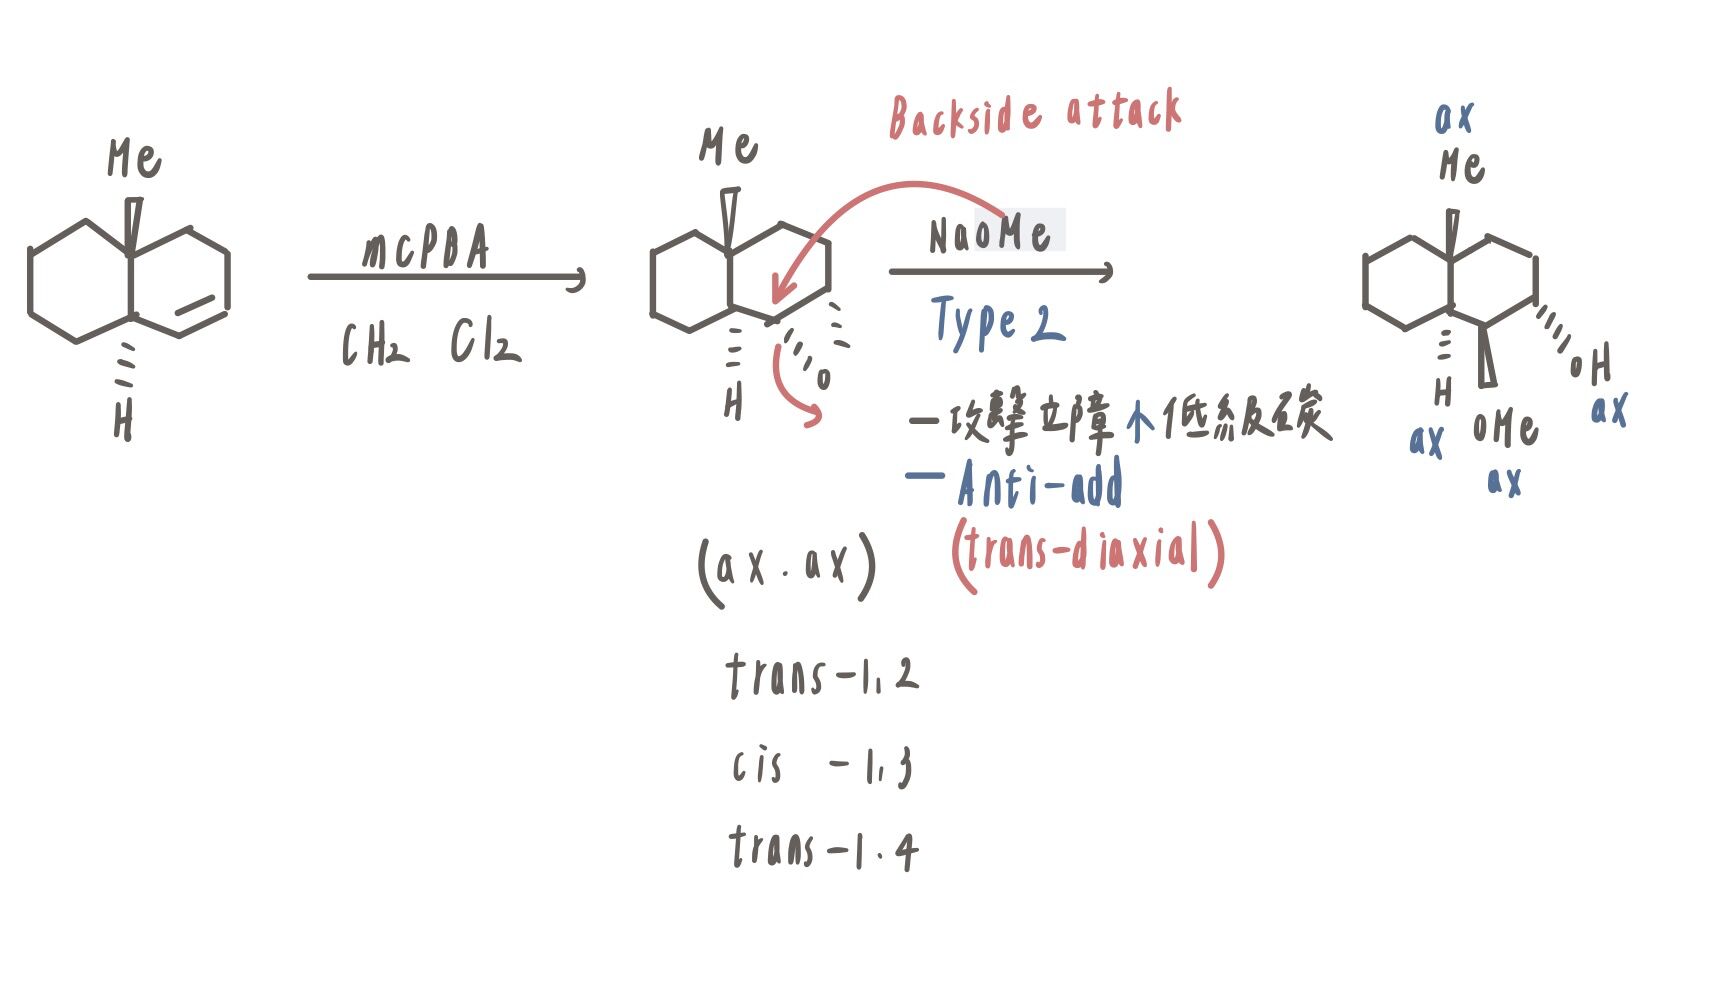 Me
H
mCPBA
CH2 Cl2
Me
H
O
Backside attack
NaOMe
Type 2
- 攻擊立障小低級碳
- Anti-add
(trans-diaxial)
ax
Me
H
ax
OMe
ax
OH
ax
(ax.ax)
trans-1,2
cis -1,3
trans-1.4